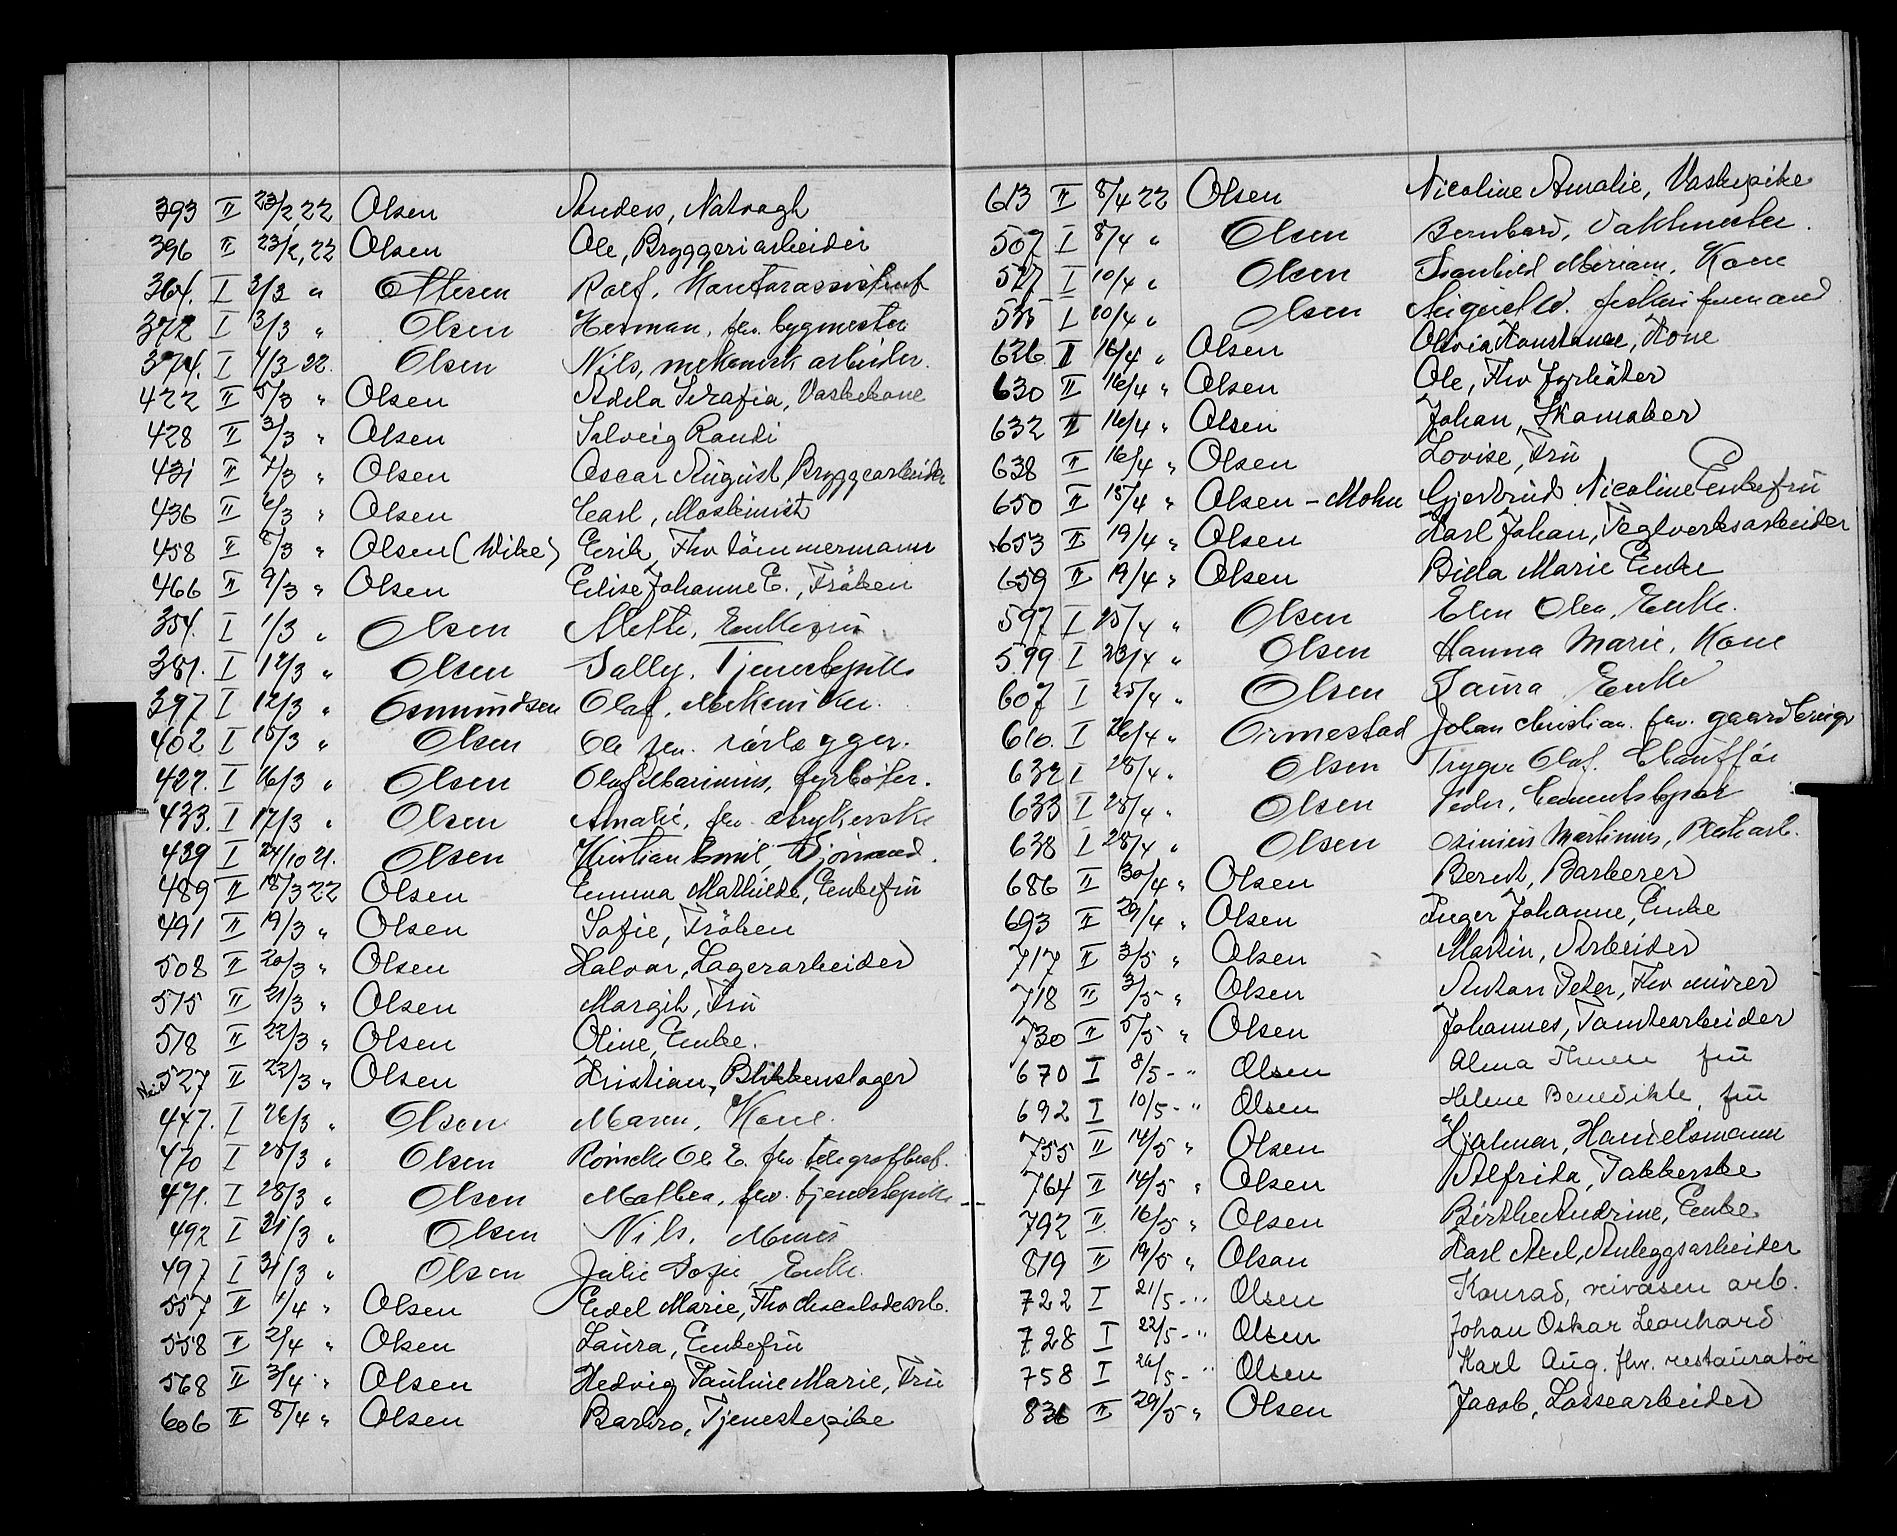 393 II 23/2 22 Olsen Anders, Natvagh
396 II 23/2, 22 Olsen Ole, Bryggeriarbeider
364. I 3/3 " Ottesen Rolf, Kontorassistent
372 I 3/3 " Olsen Herman, fhv. bygmester
374. I 4/3 22. Olsen Nils, mekanisk arbeider.
422 II 5/3 " Olsen Adela Serafia, Vaskekone
428 II 3/3 " Olsen Solveig Randi
431 II 7/3 " Olsen Oscar August, Bryggearbeider
436 II 6/3 " Olsen Carl, Maskinist
458 II 8/3 " Olsen (Wike) Erik, Fhv tömmermann
466 II 9/3 " Olsen Elise Johanne E., Fröken
354. I 1/3 " Olsen Mette, Enkefru
381. I 12/3 " Olsen Sally, Tjenestepike
397 I 12/3 " Osmundsen Olaf, Mekeniker.
402 I 15/3 " Olsen Ole fhv. rörlægger.
427. I 16/3 " Olsen Olaf Marinius, fyrböter.
433. I 17/3 " Olsen Amalie, fhv. strykerske
439 I 24/10 21. Olsen Kristian Emil, Sjömand.
489 II 18/3 22 Olsen Emma Mathilde, Enkefru
491 II 19/3 " Olsen Sofie, Fröken
508 II 20/3 " Olsen Halvar, Lagerarbeider
515 II 21/3 " Olsen Margit, Fru
518 II 22/3 " Olsen Oline, Enke.
527 II 22/3 " Olsen Kristian, Blikkenslager
447. I 26/3 " Olsen Maren, Kone.
470 I 25/3 " Olsen Ole E. fhv. telegrafbest.
471. I 28/3 " Olsen Mathea, fhv. tjenestepike
492 I 31/3 " Olsen Nils, Murer
497 I 31/3 " Olsen Julie Sofie, Enke.
557 II 1/4 " Olsen Edel Marie, Fhv chocoladearb.
558 II 2/4 " Olsen Laura, Enkefru
568 II 3/4 " Olsen Hedvig Pauline Marie, Fru
606 II 8/4 " Olsen Barbro, Tjenestepike
613 II 8/4 22 Olsen Nicoline Amalie, Vaskepike
507 I 8/4 " Olsen Bernhard, Vaktmester.
527 I 10/4 " Olsen Miriam, Kone
535 I 10/4 " Olsen
626 II 16/4 " Olsen Olivia Konstanse, Kone
630 II 16/4 " Olsen Ole, Fhv fyrböter
632 II 16/4 " Olsen Johan, Skomaker
638 II 16/4 " Olsen Lovise, Fru
650 II 18/4 " Olsen - Mohn Gjertrud Nicoline Enkefru
653 II 19/4 " Olsen Karl Johan, Teglverksarbeider
659 II 19/4 " Olsen Marie Enke
597 I 25/4 " Olsen Elen Olea, Enke.
599 I 23/4 " Olsen Hanna Marie, Kone
607 I 25/4 " Olsen Laura Enke
610. I 26/4 " Ormestad Johan Christian, fhv. gaardbruger
632 I 28/4 " Olsen Trygve Olaf, Chauffør
633 I 28/4 " Olsen Peder,
638 I 28/4 " Olsen Martinius,
686 II 30/4 " Olsen Bernt, Barberer
693 II 29/4 " Olsen Inger Johanne, Enke
717 II 3/5 " Olsen Martin, Arbeider
718 II 3/5 " Olsen Anton Peter, Fhv murer
730 II 5/5 " Olsen Johannes, Tomtearbeider
670 I 8/5 - " Olsen Alma fru
692 I 10/5 - " Olsen Helene Benedikte, fru
755 II 14/5 " Olsen Hjalmar, Handelsmann
764 II 14/5 " Olsen Alfrida, Pakkerske
792 II 16/5 " Olsen Birthe Andrine, Enke.
819 II 19/5 " Olsen Karl Axel, Anleggsarbeider
722 I 21/5 - " Olsen Konrad, veivæsen arb.
728 I 22/5 - " Olsen Johan Oskar Leonhard
758 I 26/5 - " Olsen Karl Aug. fhv. restauratør
836 II 29/5 " Olsen Jacob, Lossearbeider